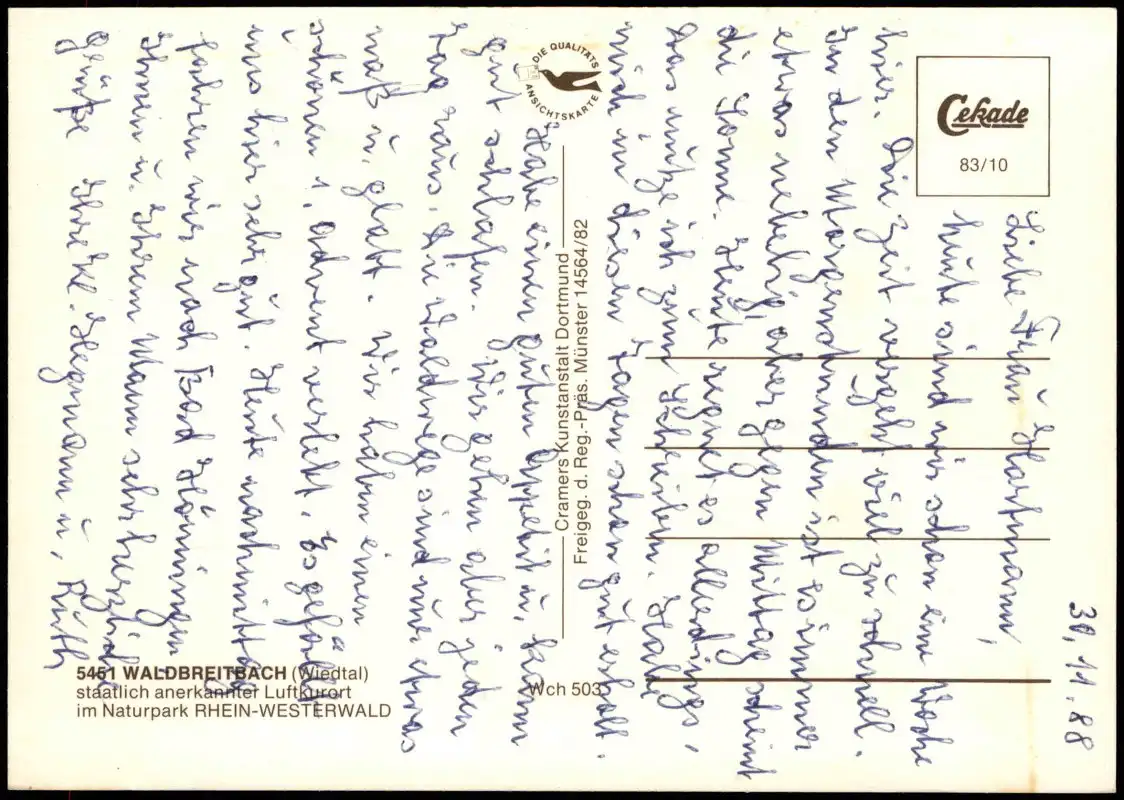 30.11.88
Liebe Frau Hartmann,
heute sind wir schon eine Woche
hier. Die Zeit vergeht viel zu schnell.
In den Morgenstunden ist es immer
etwas neblig, aber gegen Mittag scheint
die Sonne. Heute regnet es allerdings,
das nutze ich zum Schreiben. Habe
mich in diesen Tagen schon gut erholt.
Habe einen guten Appetit u. kann
gut schlafen. Wir gehen aber jeden
Tag raus, die Waldwege sind nur etwas
naß u. glatt. Wir haben einen
schönen 1. Advent verlebt. Es gefällt
uns hier sehr gut. Heute nachmittag
fahren wir nach Bad Hönningen
Ihnen u. Ihrem Mann sehr herzliche
Grüße Ihre Kl. Hegmann u. Ruth
DIE QUALITÄTS
ANSICHTSKARTE
Cekade
83/10
Cramers Kunstanstalt Dortmund
Freigeg. d. Reg.-Präs. Münster 14564/82
5451 WALDBREITBACH (Wiedtal)
staatlich anerkannter Luftkurort
im Naturpark RHEIN-WESTERWALD
Wch 503